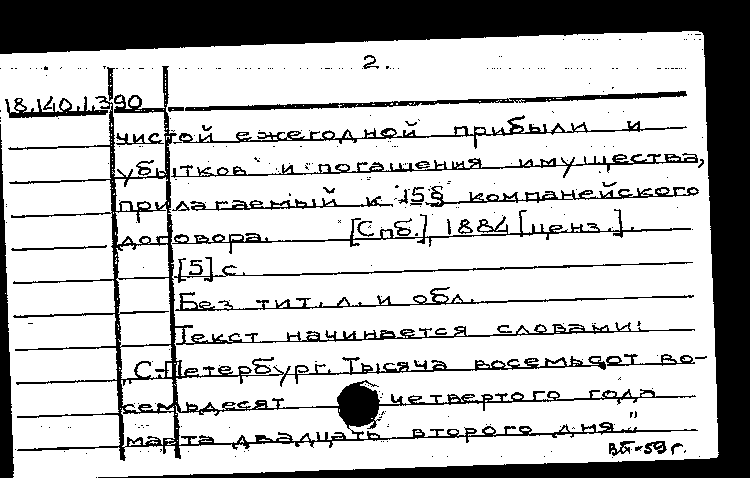 2.
18.140.1.390
чистой ежегодной прибыли и
убытков и погашения имущества,
прилагаемый к 15§ компанейского
договора. [Спб.], 1884 [ценз.].
[5] с.
Без тит. л. и обл.
Текст начинается словами:
„С-Петербург. Тысяча восемьсот во-
семьдесят четвертого года
марта двадцать второго дня."
ВП-59г.